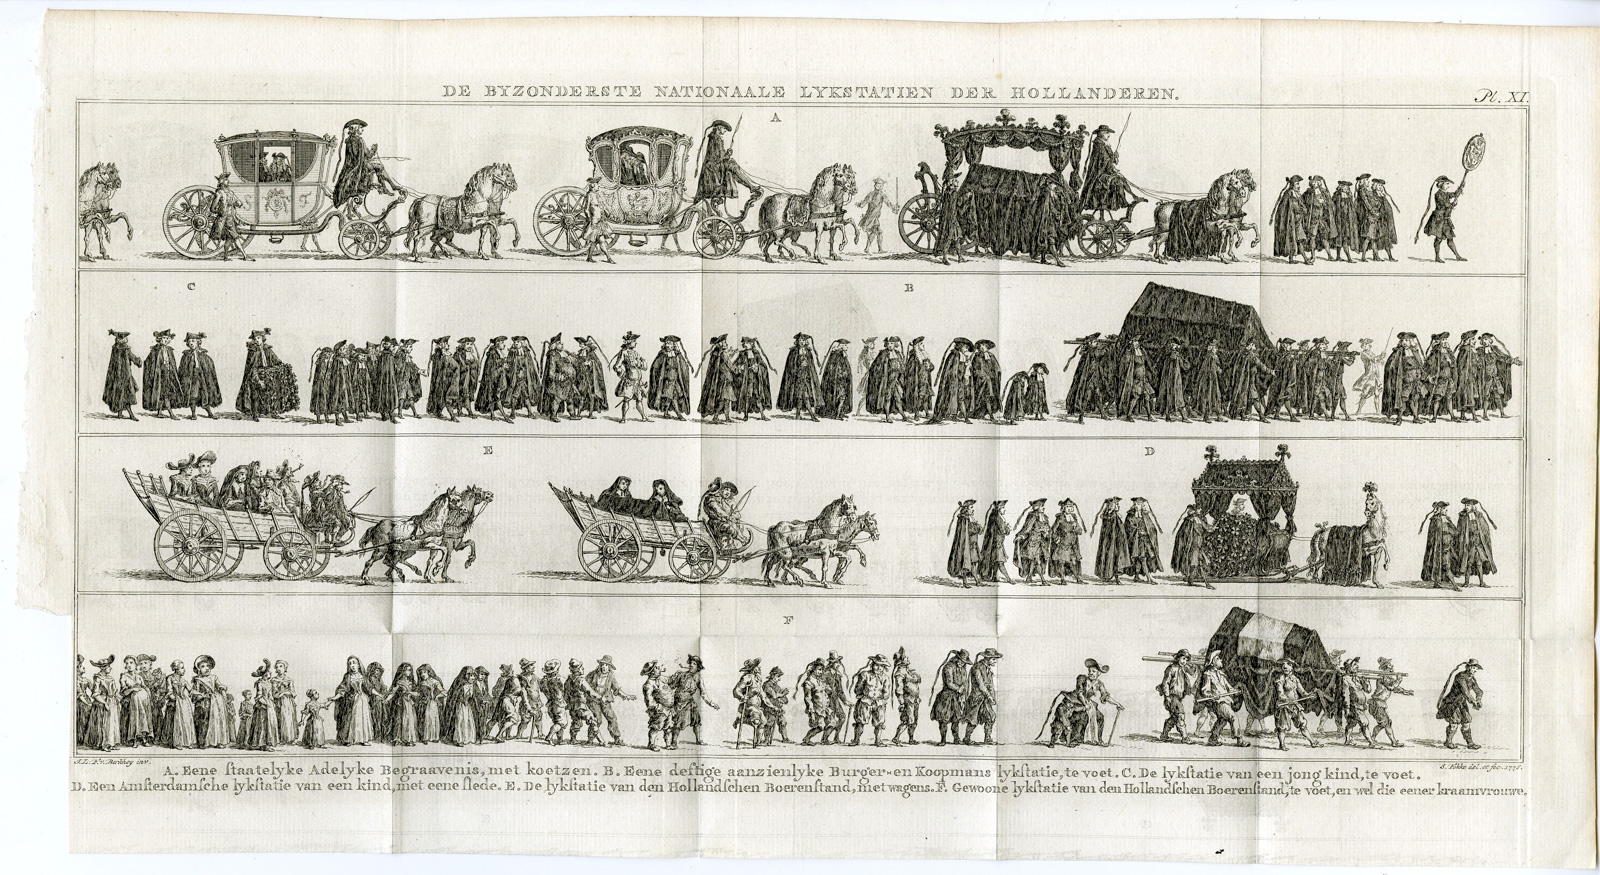 DE BYZONDERSTE NATIONAALE LYKSTATIEN DER HOLLANDEREN.
Pl. XI.
A
C
B
E
D
F
J. L: F. v. Berkhey inv.
S. Fokke del. et fec. 1776.
A. Eene ſtaatelyke Adelyke Begraavenis, met koetzen. B. Eene deftige aanzienlyke Burger- en Koopmans lykſtatie, te voet. C. De lykſtatie van een jong kind, te voet.
D. Een Amſterdamſche lykſtatie van een kind, met eene ſlede. E. De lykſtatie van den Hollandſchen Boerenſtand, met wagens. F. Gewoone lykſtatie van den Hollandſchen Boerenſtand, te voet, en wel die eener kraamvrouwe.